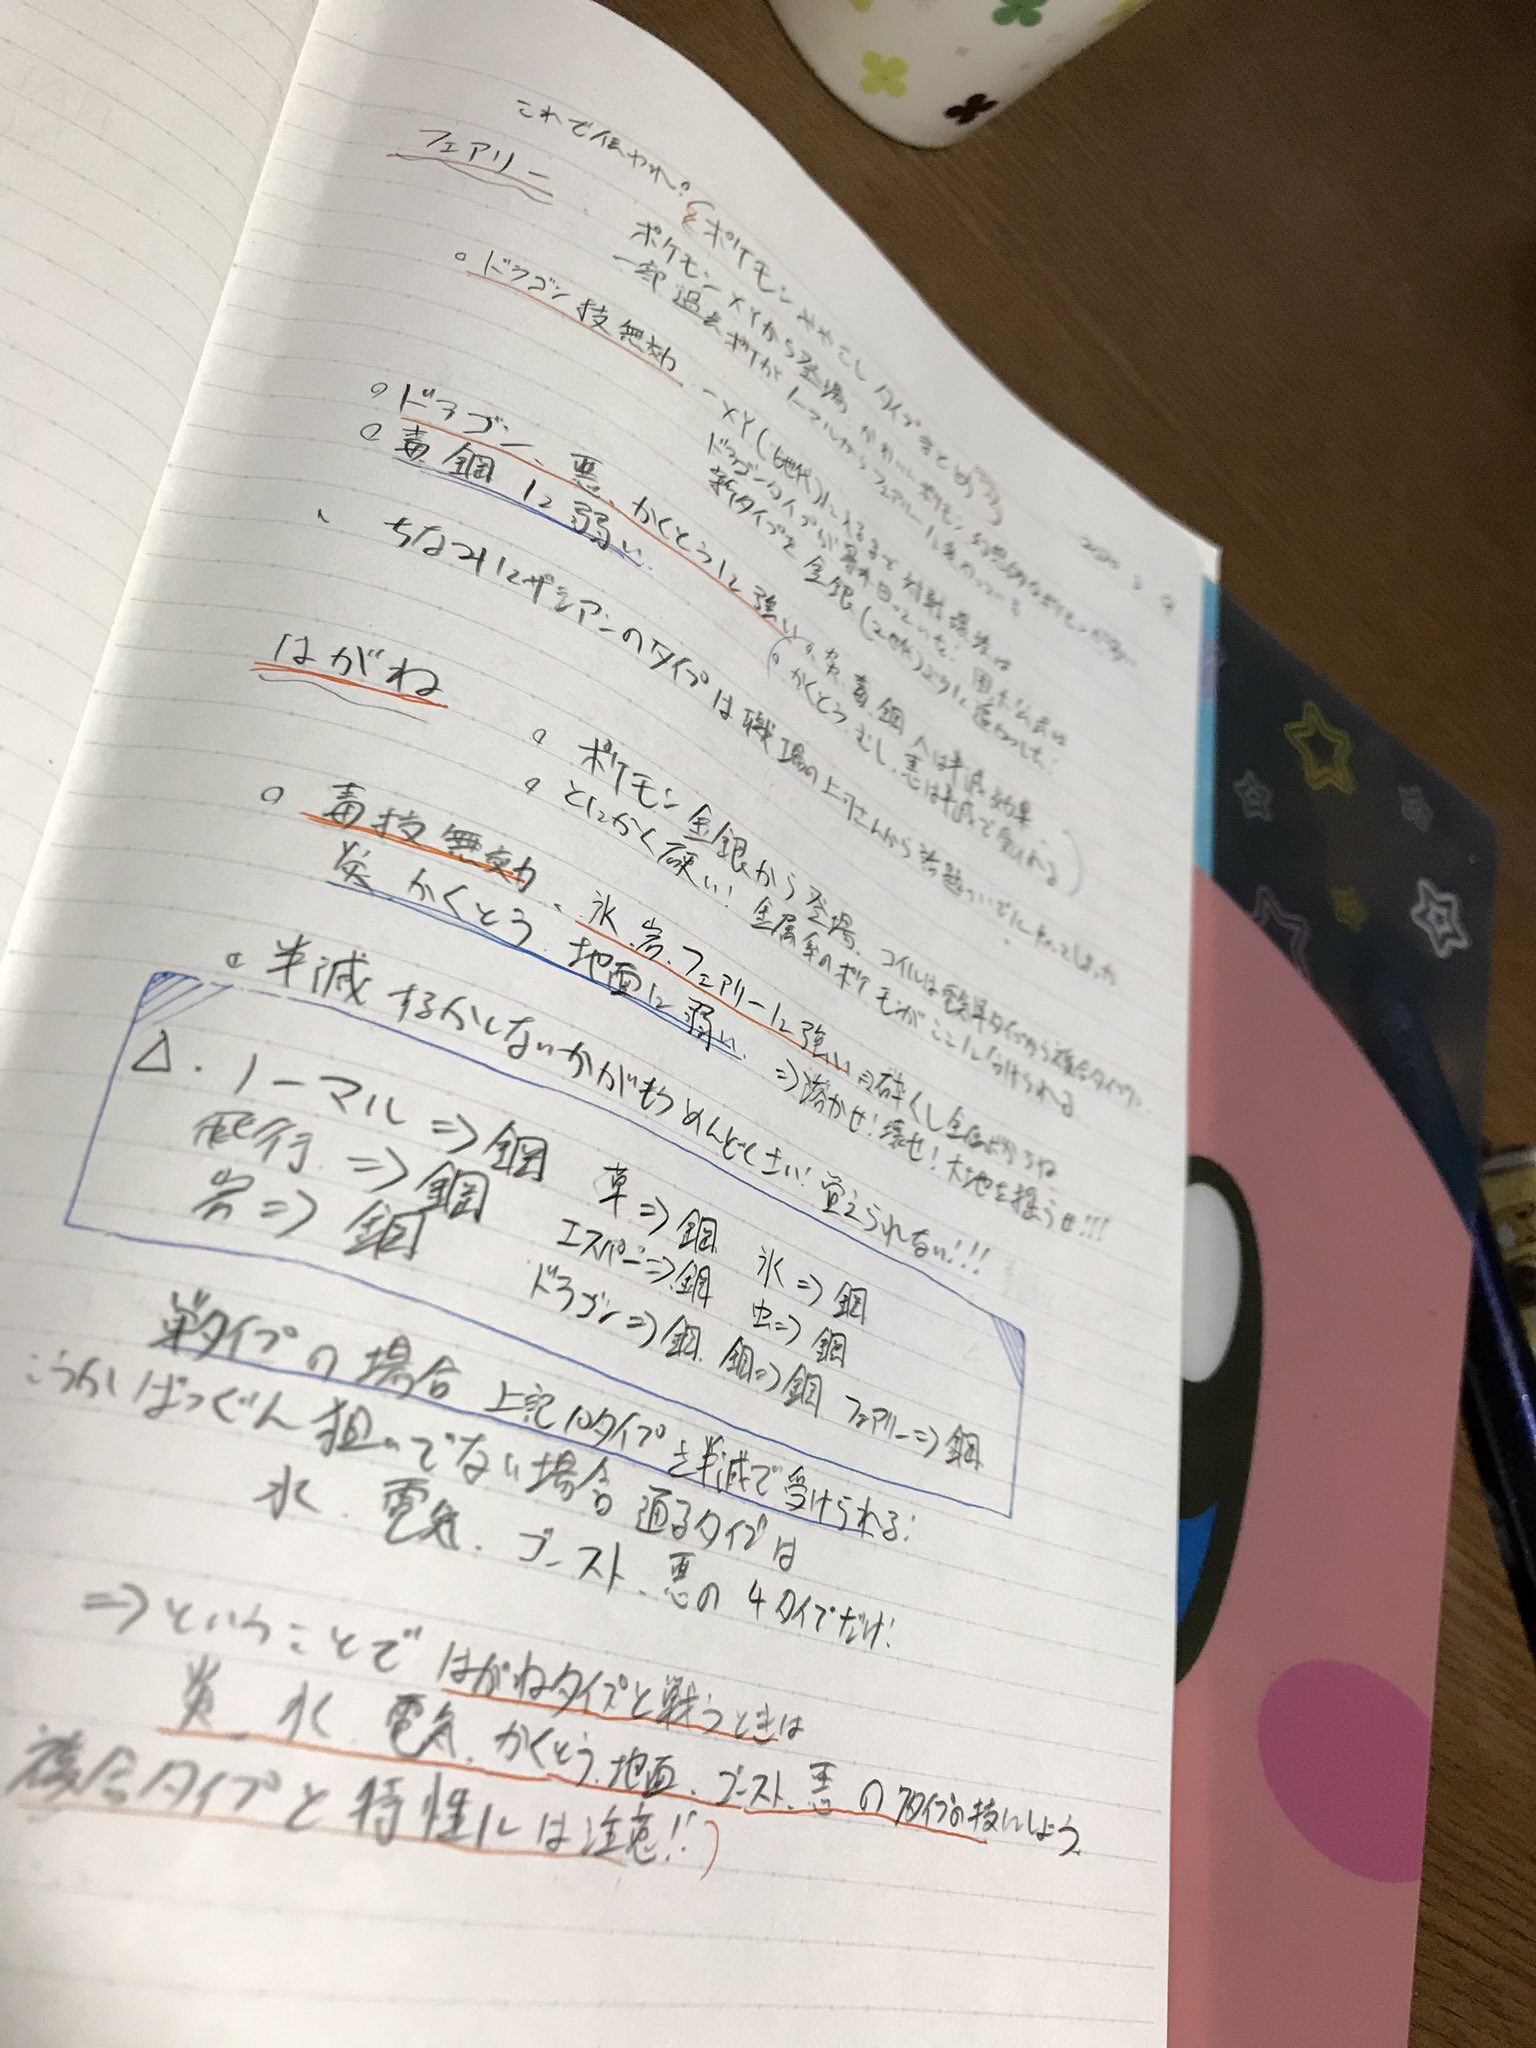 2020 3 9
これで伝われ!ポケモンややこしタイプまとめ
フェアリー
ポケモンXYから登場.かわいいポケモン 幻想的なポケモンが多い
一部過去ポケがノーマルからフェアリーに変わっている
・ドラゴン技無効 — XY(6世代)に入るまで対戦環境は
ドラゴンタイプが
新タイプを金銀(2世代)ぶりに追加した!
・ドラゴン、悪、かくとうに強い
・毒.鋼に弱い
・炎.毒.鋼へは半減効果.
・かくとう.むし.悪は半減で受けれる
、ちなみにザシアンのタイプは職場の上司さんから
はがね
・ポケモン金銀から登場.コイルは電気単タイプから複合タイプに
・とにかく硬い!金属系のポケモンがここに分けられる
・毒技無効、氷.岩.フェアリーに強い⇒砕くし
炎 かくとう.地面に弱い ⇒溶かせ!壊せ!大地を揺らせ!!!
・半減するかしないかがもうめんどくさい!覚えられない!!!
△.ノーマル⇒鋼 草⇒鋼 氷⇒鋼
飛行.⇒鋼 エスパー⇒鋼 虫⇒鋼
岩⇒鋼 ドラゴン⇒鋼. 鋼⇒鋼 フェアリー⇒鋼
単タイプの場合 上記10タイプを半減で受けられる!
こうかばつぐん狙いでない場合 通るタイプは
水.電気.ゴースト.悪の4タイプだけ!
⇒ということではがねタイプと戦うときは
炎.水.電気.かくとう.地面.ゴースト.悪の7タイプの技にしよう
複合タイプと特性には注意!!)